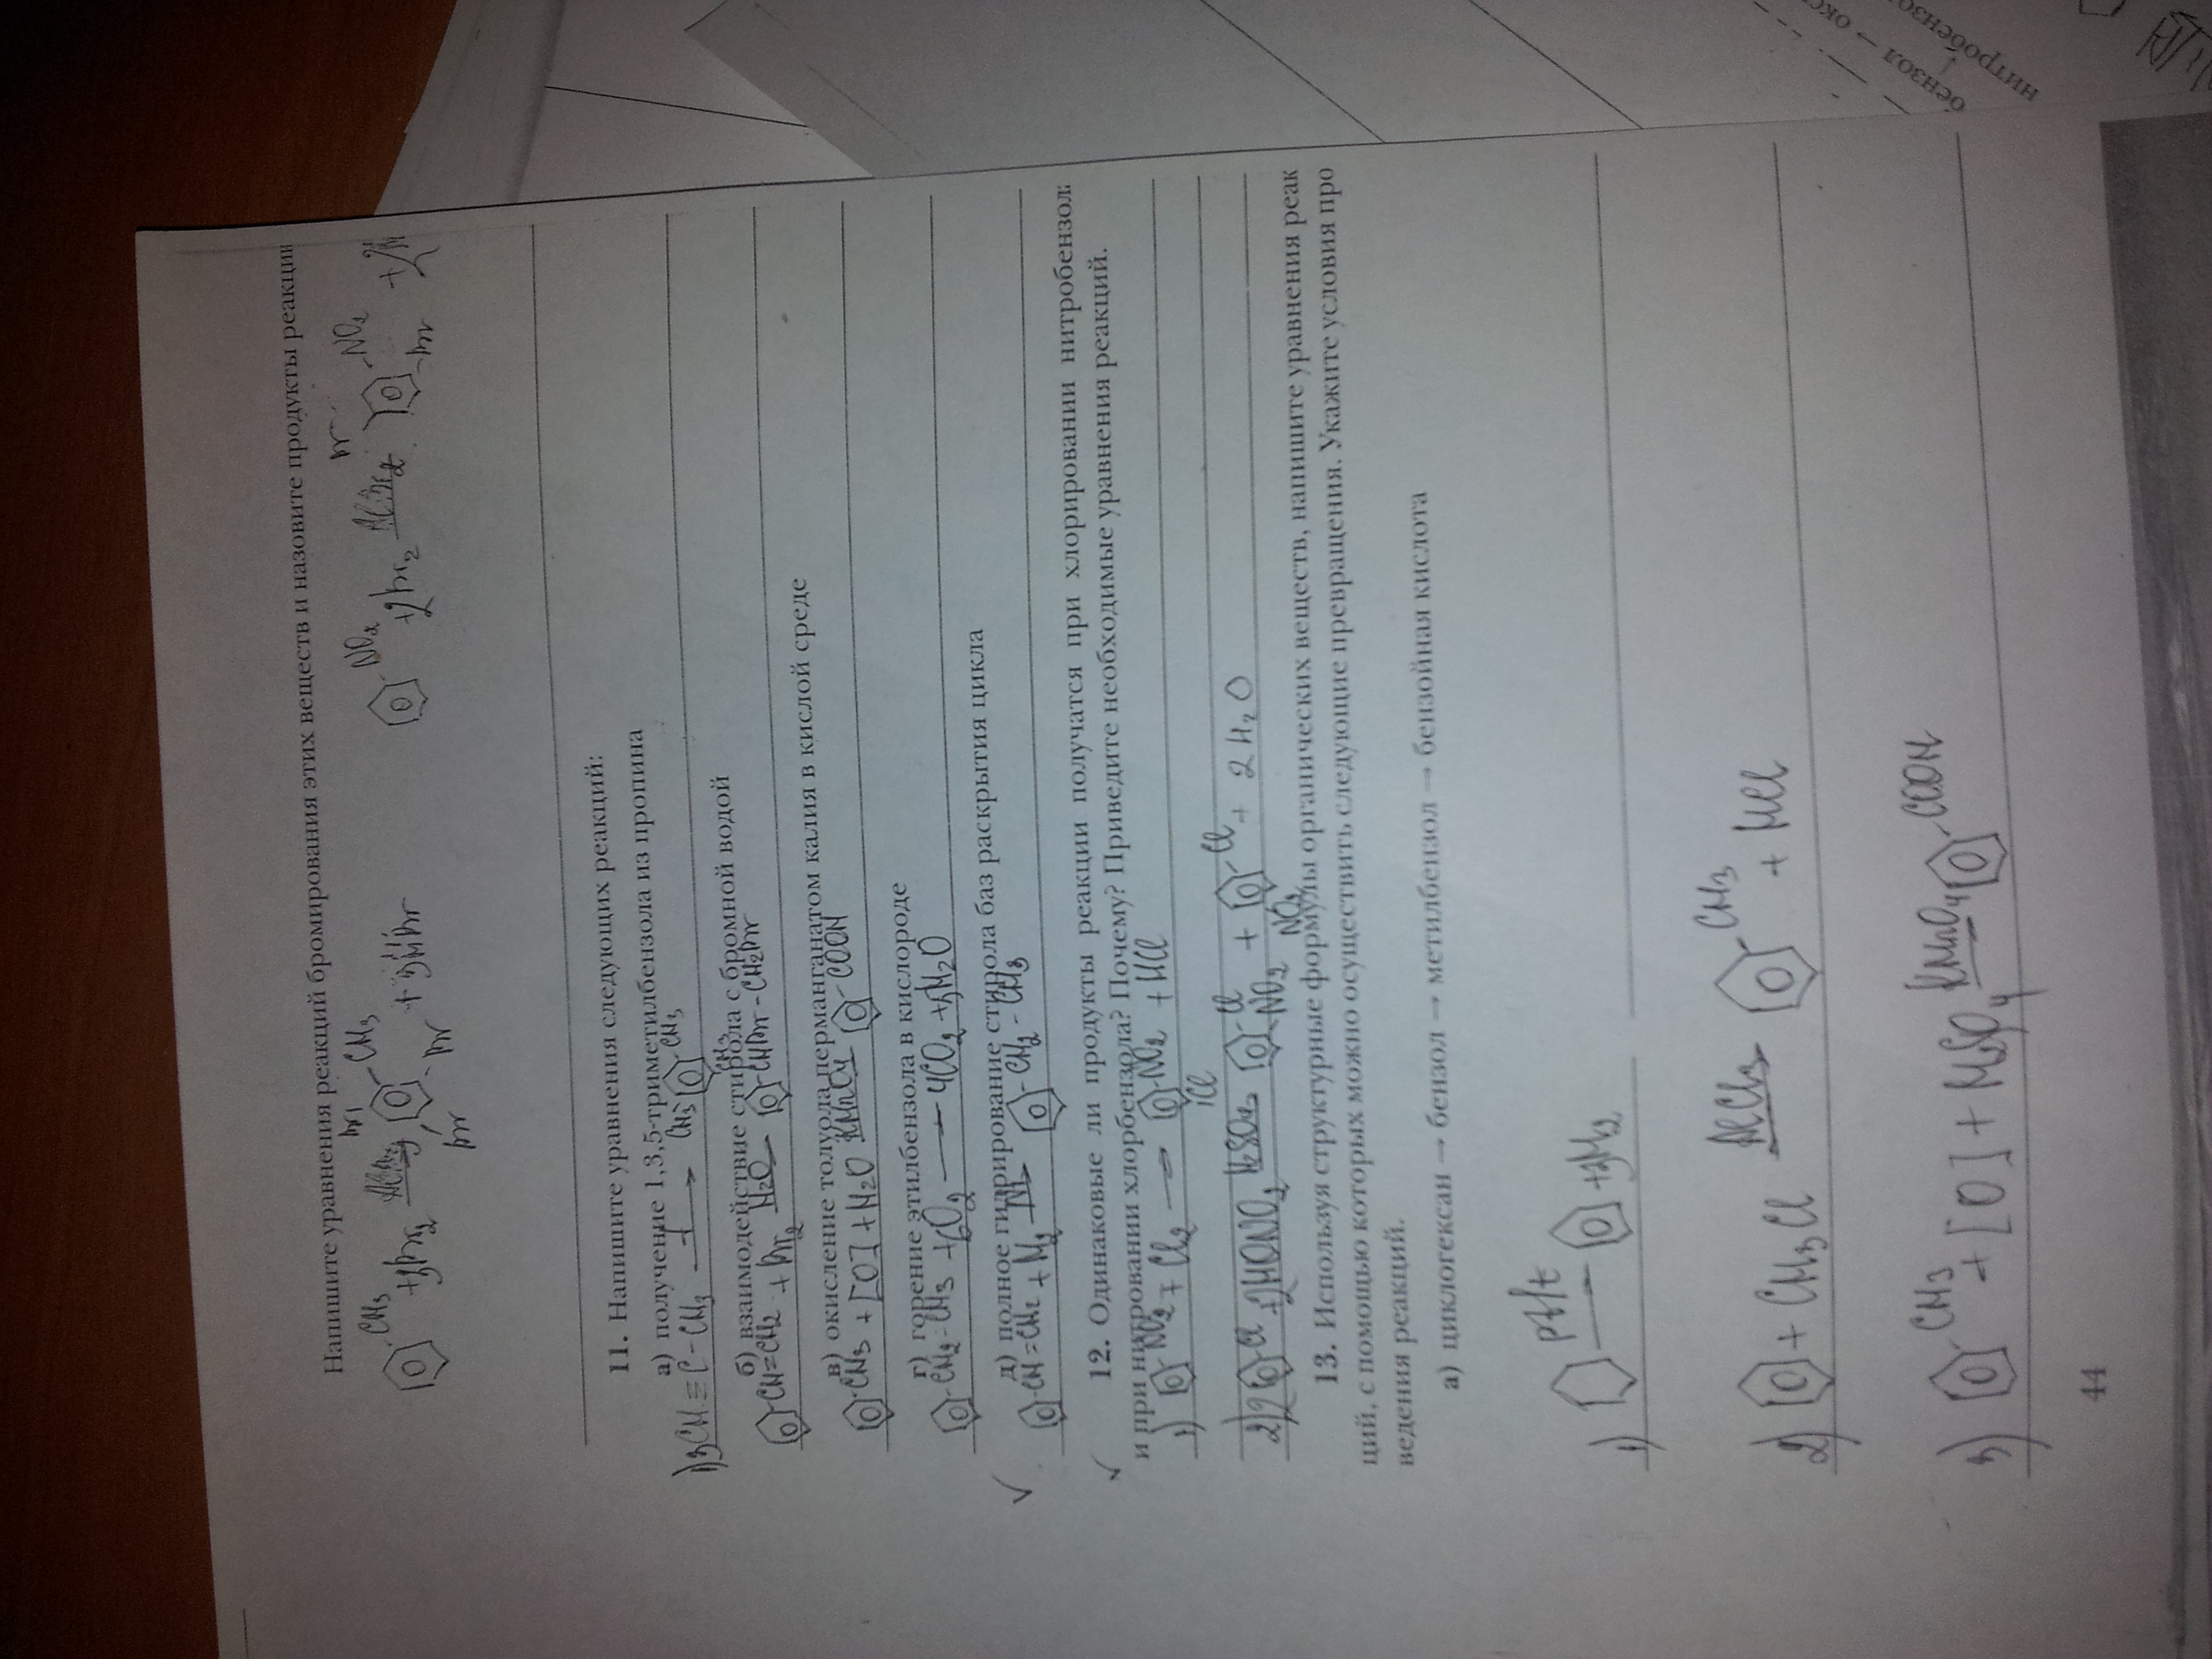 Напишите уравнения реакций бромирования этих веществ и назовите продукты реакции
CH3 +3Br2 Br CH3 Br Br + 3HBr
NO2 +2Br2 Br NO2 Br
11. Напишите уравнения следующих реакций:
а) получение 1,3,5-триметилбензола из пропина
1) 3CH≡C-CH3 t → CH3 CH3 CH3
б) взаимодействие стирола с бромной водой
CH=CH2 + Br2 H2O CHBr-CH2Br
в) окисление толуола перманганатом калия в кислой среде
CH3 + [O] + H2O COOH
г) горение этилбензола в кислороде
CH2-CH3 + 6O2 → 4CO2 + 5H2O
д) полное гидрирование стирола баз раскрытия цикла
CH=CH2 + H2 Ni → CH2-CH3
12. Одинаковые ли продукты реакции получатся при хлорировании нитробензола
и при нитровании хлорбензола? Почему? Приведите необходимые уравнения реакций.
1) NO2 + Cl2 → NO2 + HCl
Cl
2) 2 Cl + 2HONO2 H2SO4 Cl NO2 + Cl NO2 + 2H2O
13. Используя структурные формулы органических веществ, напишите уравнения реак
ций, с помощью которых можно осуществить следующие превращения. Укажите условия про
ведения реакций.
а) циклогексан → бензол → метилбензол → бензойная кислота
1) Pt/t + 3H2
2) + CH3Cl AlCl3 CH3 + HCl
3) CH3 + [O] + KMnO4 COOH
44
бензол → окс
нитробензо